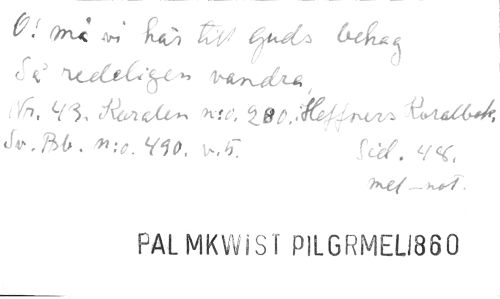 O! må vi här till Guds behag
Så redeligen vandra,
Nr. 43. Koralen n:o. 280. Heffners Koralbok,
Sv. Bb. n:o. 490. v. 5. Sid. 48.
mel-not.
PALMKWIST PILGRMEL1860